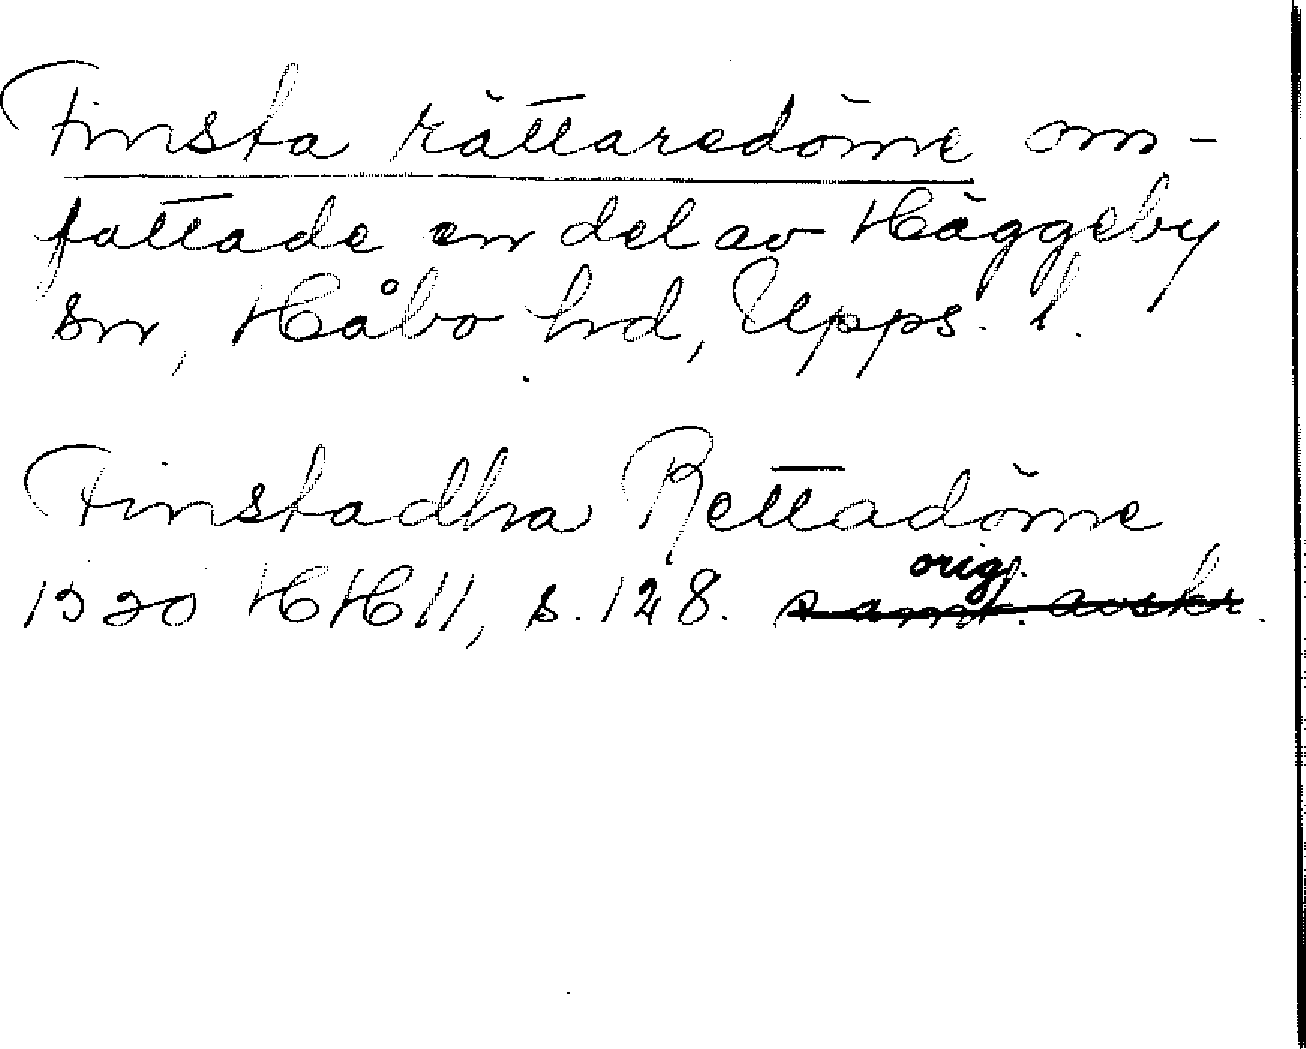 Finsta rättaredöme om-
fattade en del av Häggeby
sn, Håbo hd, Upps. l.
Finstadha Rettadöme
1320 HH 11, s. 128. orig.
samt. avskr.